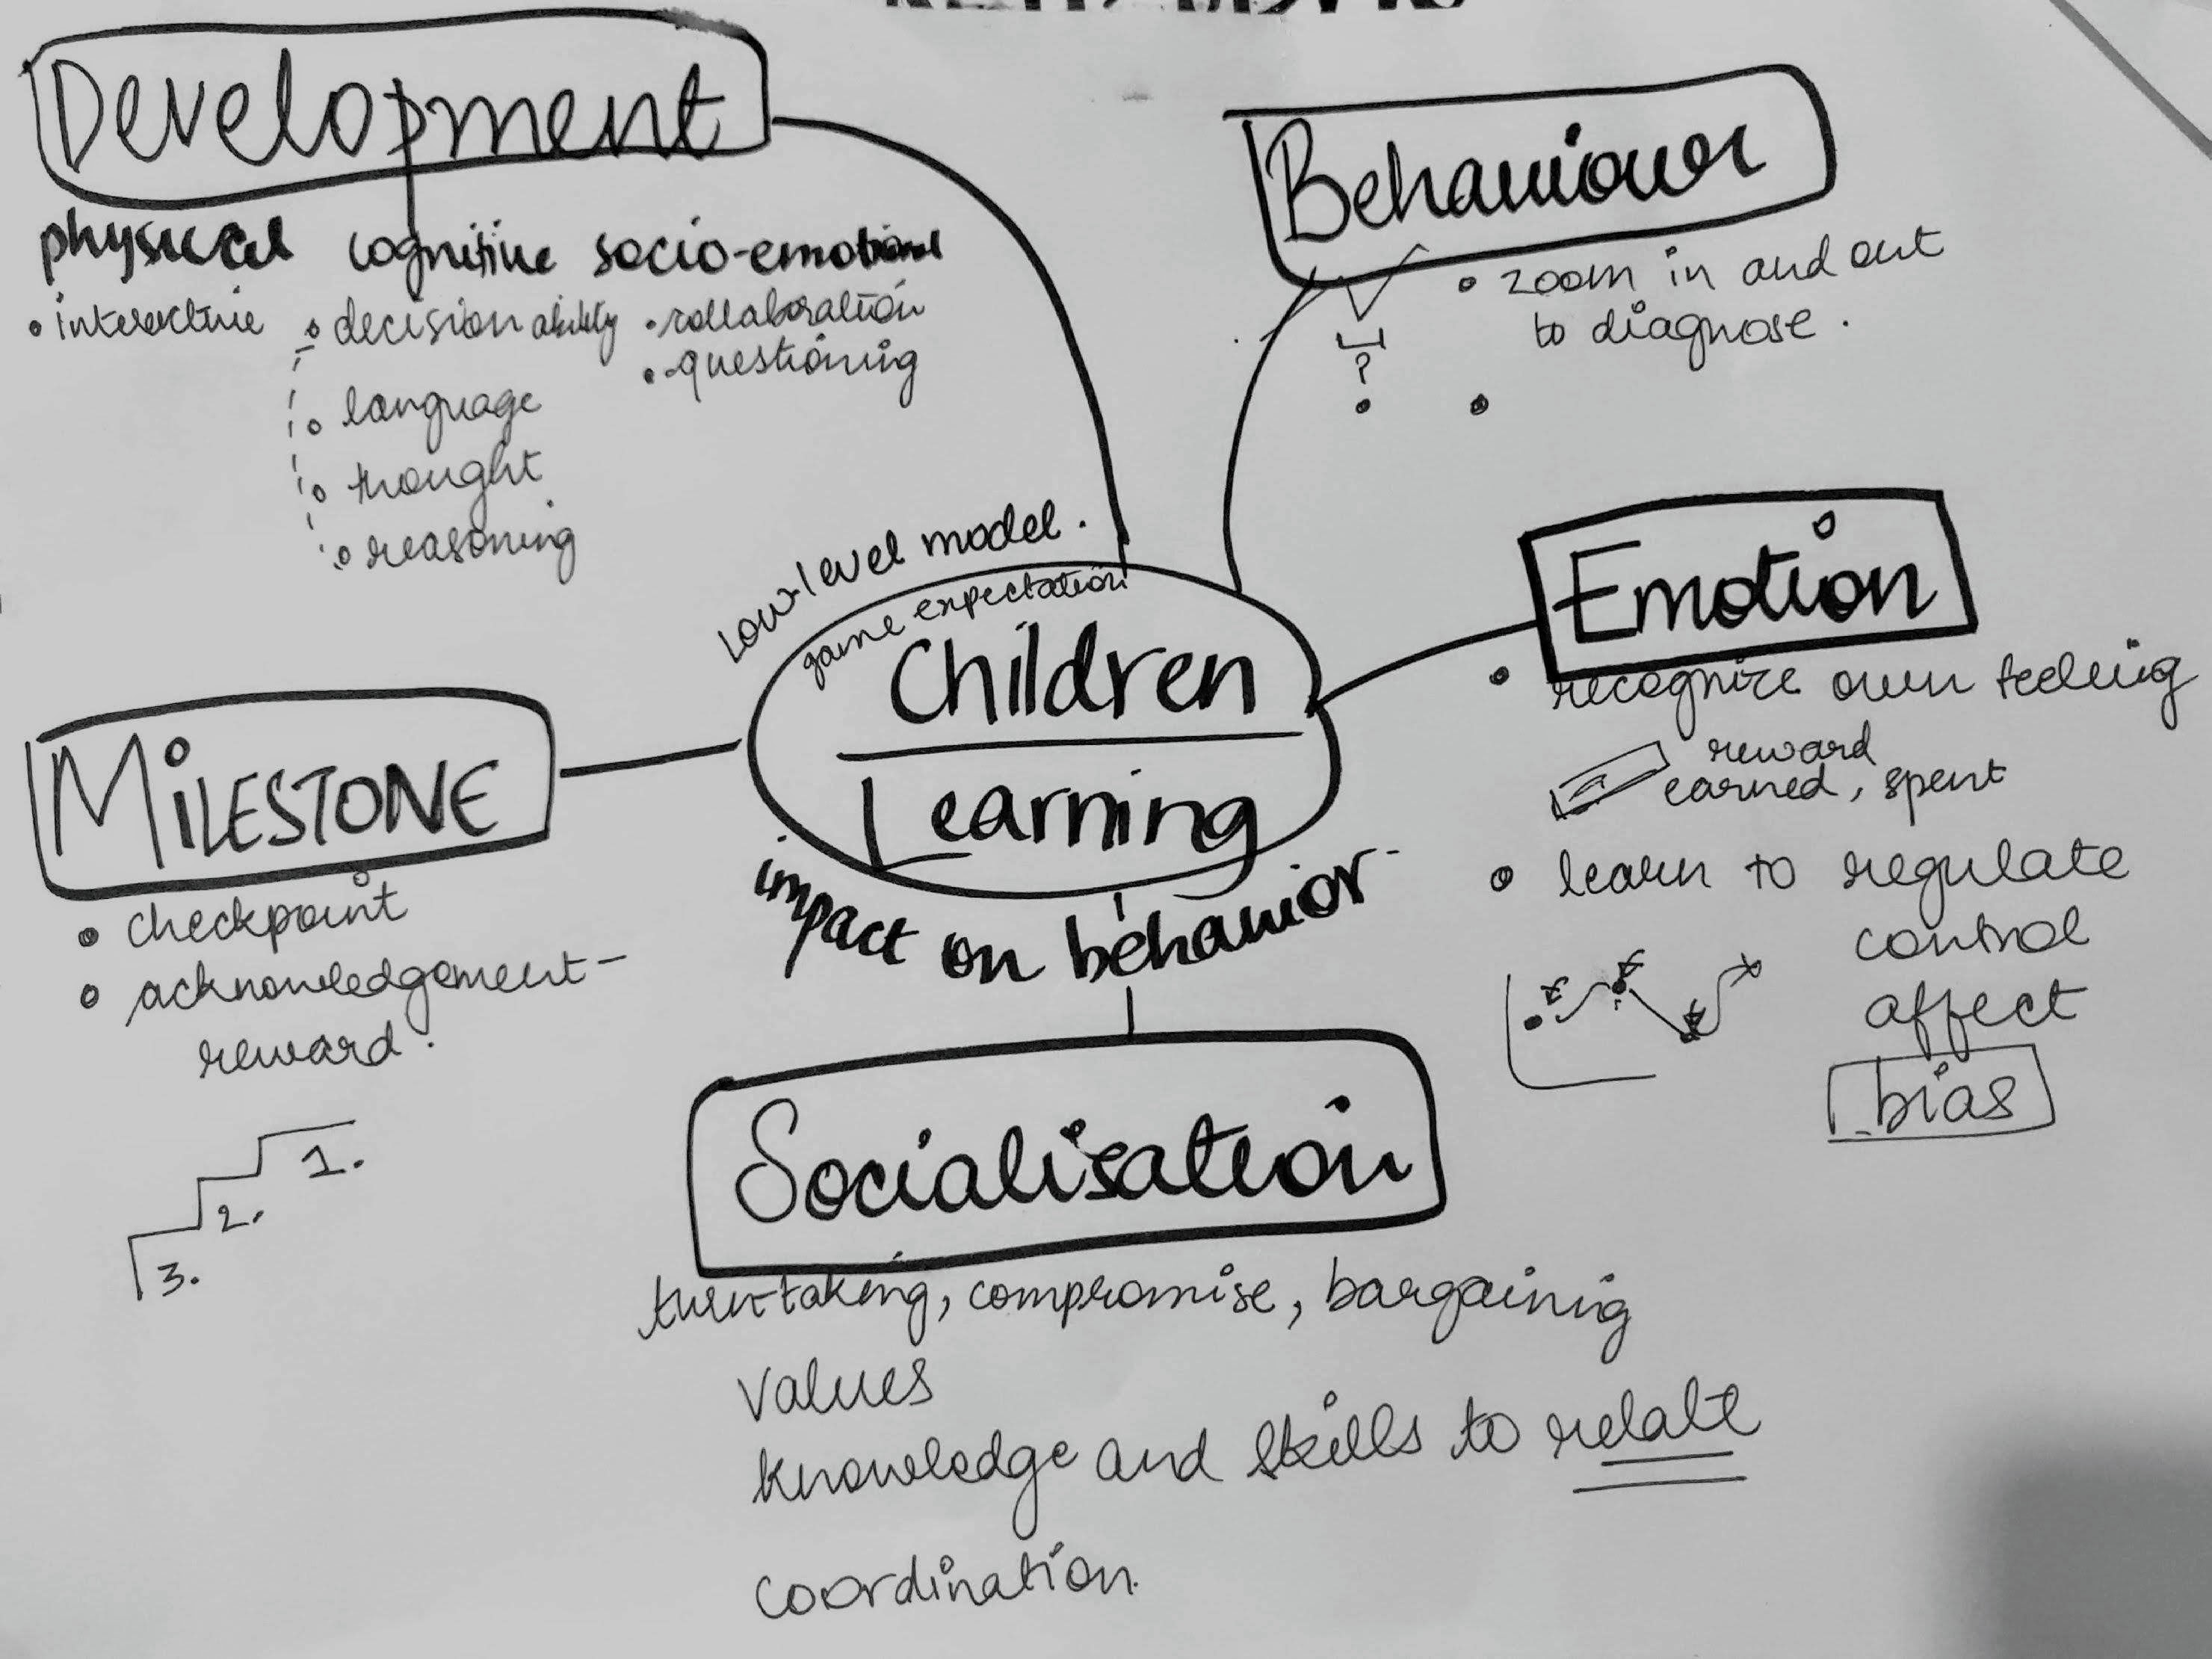 Development
physical cognitive socio-emotional
• interactive
• decision ability
• language
• thought
• reasoning
• collaboration
• questioning
Behaviour
• zoom in and out
to diagnose.
?
Low-level model.
game expectation
Children
Learning
impact on behavior
Emotion
• recognize own feeling
reward
earned, spent
• learn to regulate
control
affect
bias
MiLESTONE
• checkpoint
• acknowledgement-
reward.
1.
2.
3.
Socialisation
turn-taking, compromise, bargaining
values
knowledge and skills to relate
coordination.